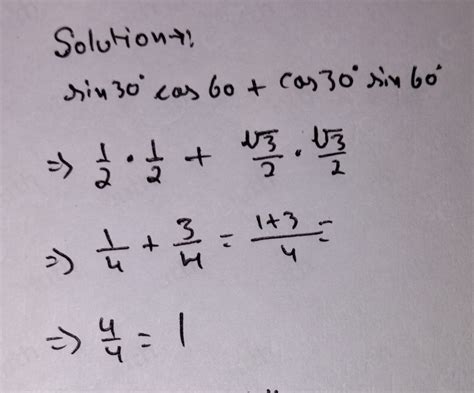 Solution→:
sin30° cos 60 + cos30° sin 60°
⇒ 1/2 · 1/2 + √3/2 · √3/2
⇒ 1/4 + 3/4 = 1+3/4 =
⇒ 4/4 = 1